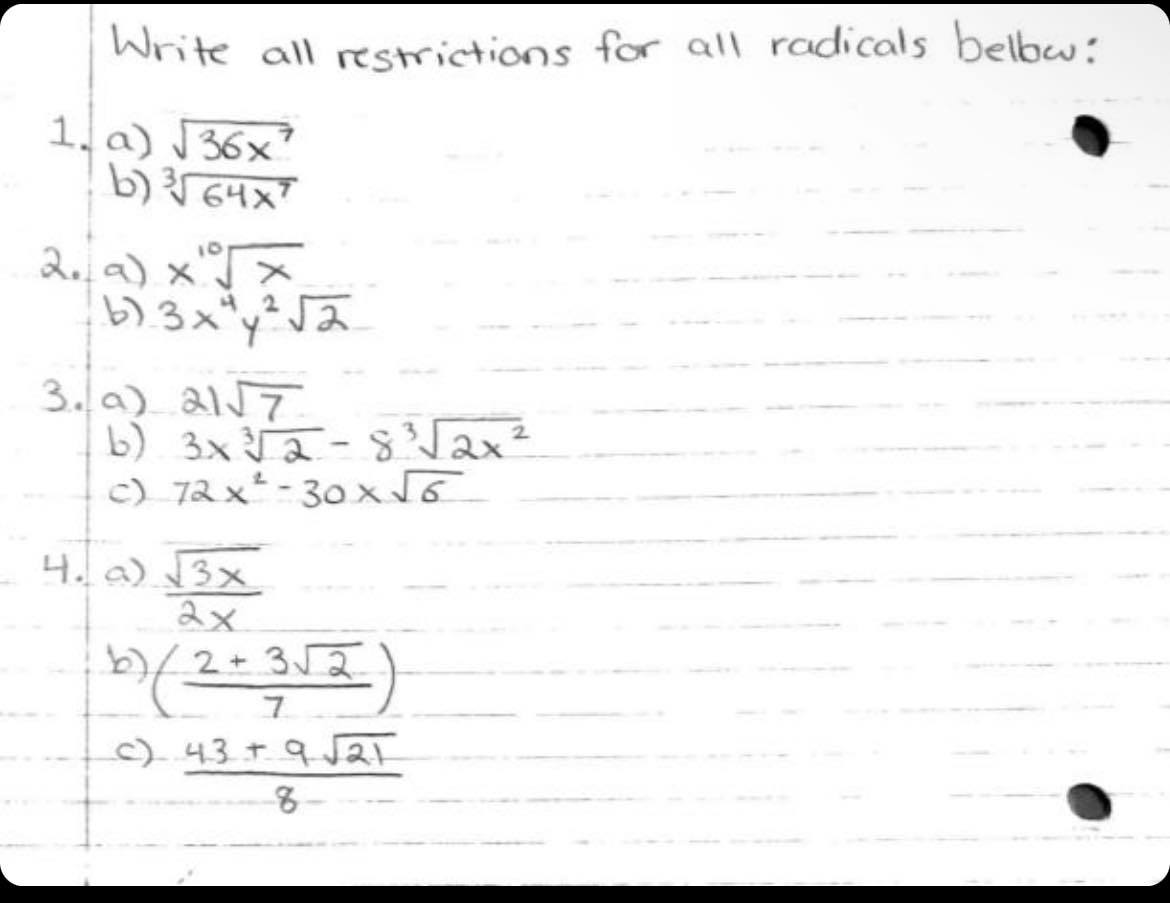 Write all restrictions for all radicals below:
1. a) √36x⁷
b) ³√64x⁷
2. a) x ¹⁰√x
b) 3x⁴y²√2
3. a) 21√7
b) 3x ³√2 - 8 ³√2x²
c) 72x² - 30x√6
4. a) √3x
2x
b) (2 + 3√2)
7
c) 43 + 9√21
8